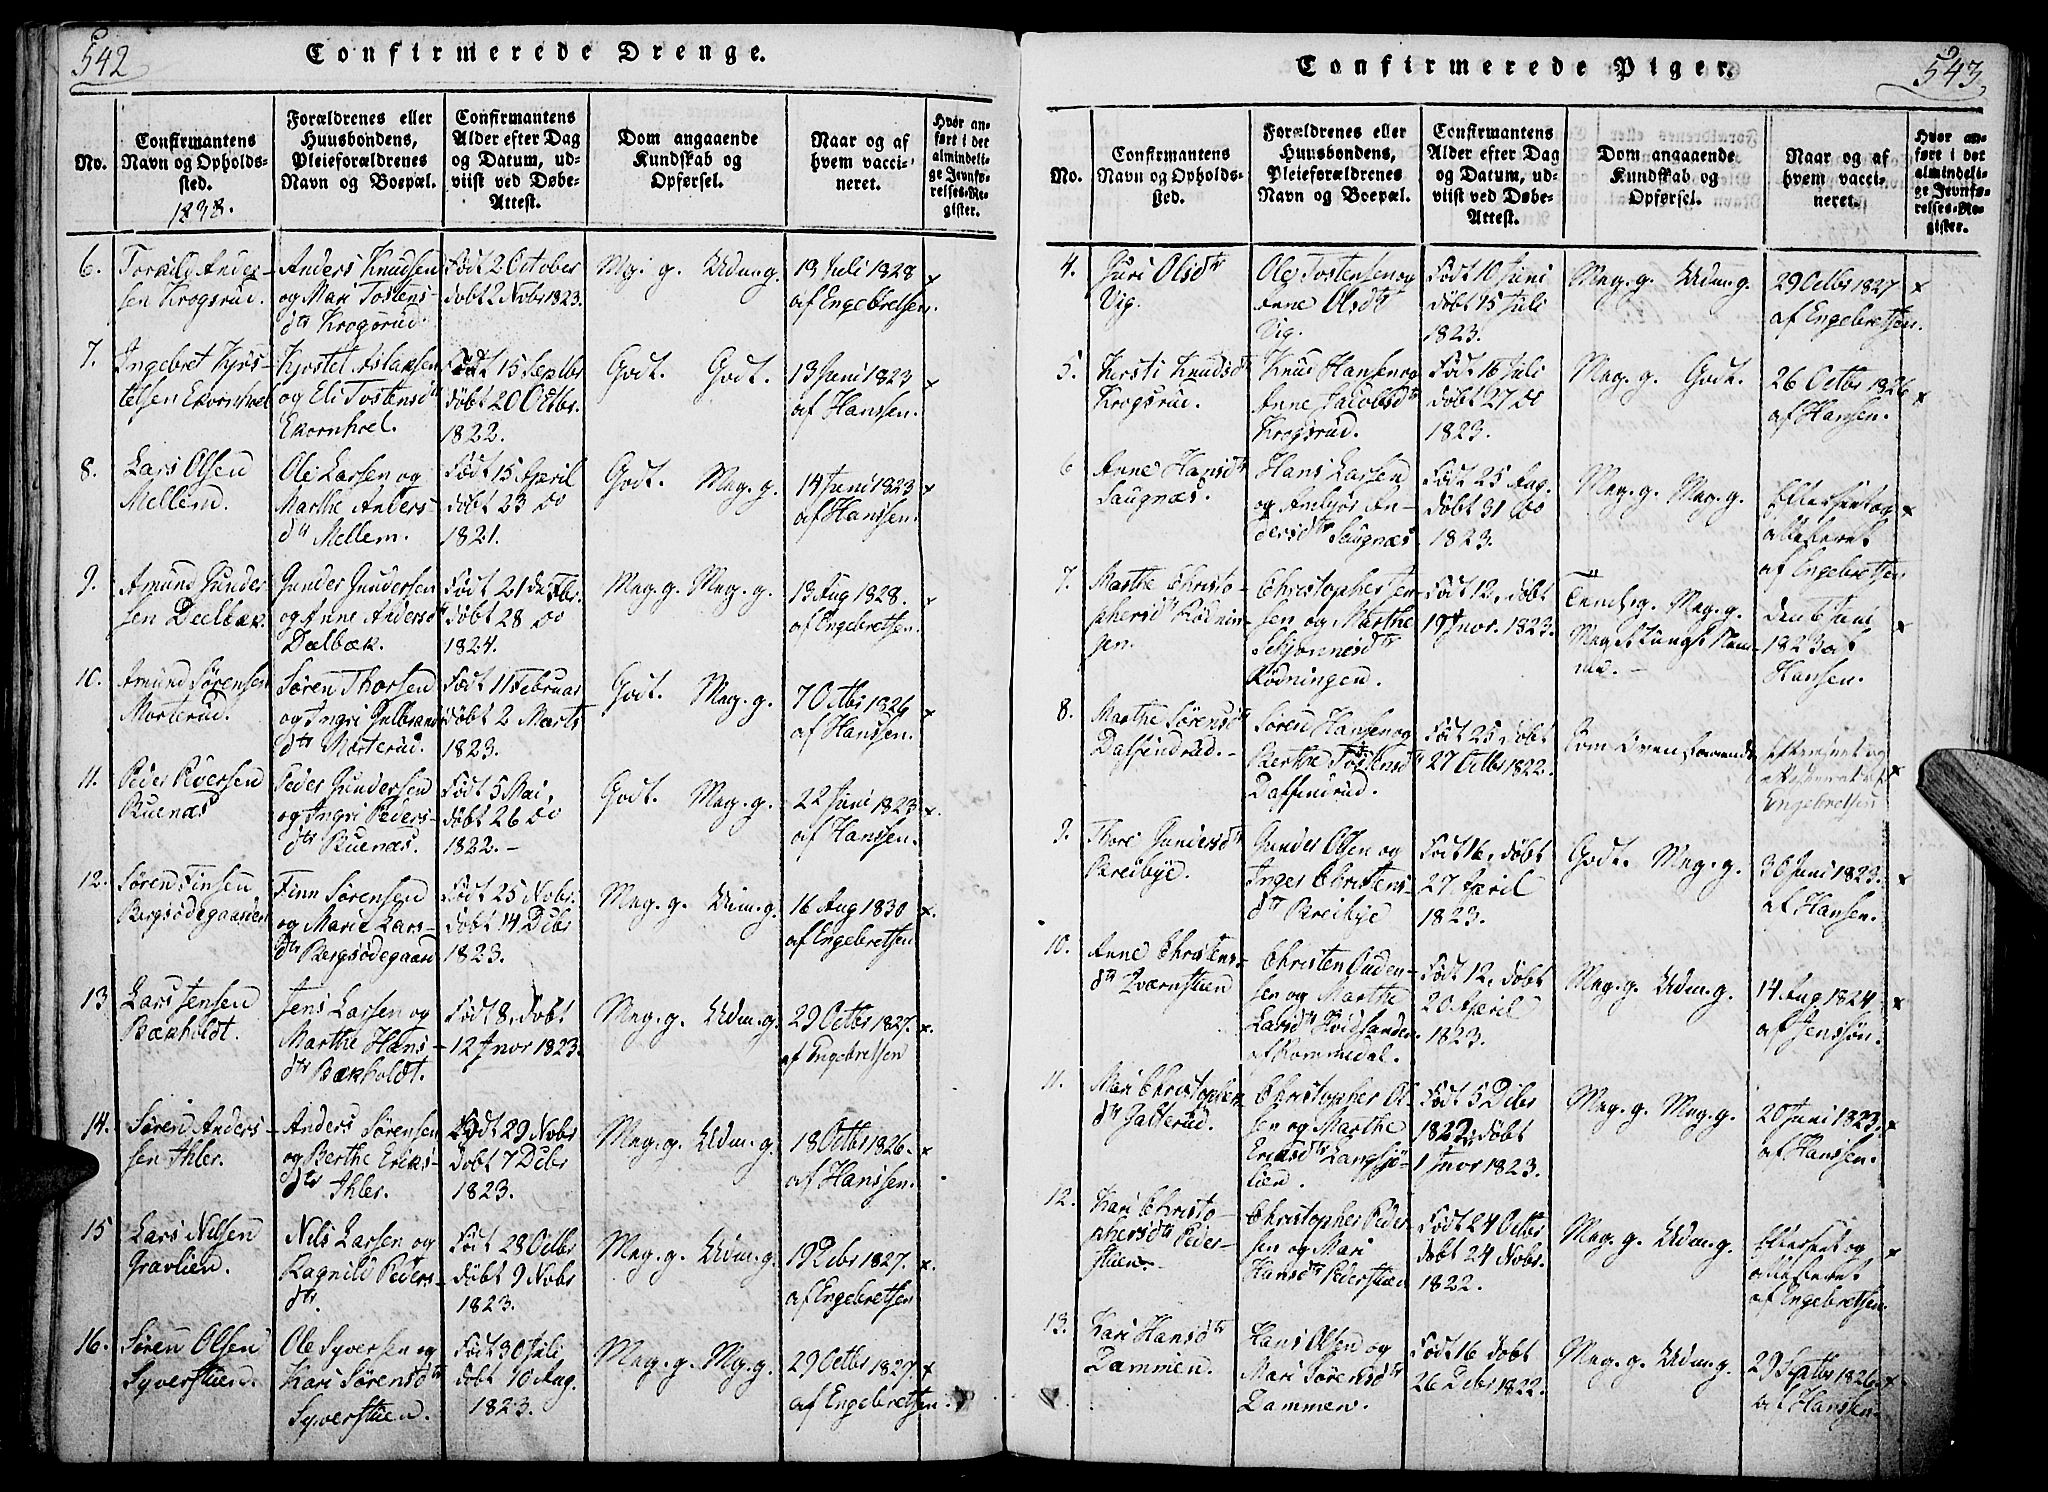 542
Confirmerede Drenge.
No.
Confirmantens
Navn og Opholds-
sted.
1838.
Forældrenes eller
Huusbondens,
Pleieforældrenes
Navn og Boepæl.
Confirmantens
Alder efter Dag
og Datum, ud-
viist ved Døbe-
Attest.
Dom angaaende
Kundskab og
Opførsel.
Naar og af
hvem vacci-
neret.
Hvor an-
ført i det
almindeli-
ge Jevnfø-
relses-Re-
gister.
6.
Anders-
sen Krogsrud.
Anders Knudsen
og Mari Tostens-
dtr Krogsrud.
Født 2 October
døbt 2 Nobr 1823.
Mg. g. Udm. g.
13 Juli 1828
af Engebretsen.
x
7.
Ingebret Kjøs-
telsen Ekornhoel
Kjøstel Aslaksen
og Eli Tostensdtr
Ekornhoel.
Født 15 Septbr
døbt 20 Octbr.
1822.
Godt. Godt.
13 Juni 1823
af Hanssen.
x
8.
Lars Olsen
Mellem.
Ole Larsen og
Marthe Anders-
dtr Mellem.
Født 15 April
døbt 23 do
1821.
Godt. Meg. g.
14 Juni 1823
af Hanssen.
x
9.
Amund Gunder-
sen Dælbæk.
Gunder Gundersen
og Anne Andersdtr
Dælbæk.
Født 21
døbt 28 do
1824.
Meg. g. Meg. g.
13 Aug 1828.
af Engebretsen.
x
10.
Amund Sørensen
Morterud.
Søren Thorsen
og Ingri Gulbrands
dtr Morterud.
Født 11 Februar
døbt 2 Marts
1823.
Godt. Meg. g.
7 Octbr 1826
af Hanssen.
x
11.
Peder Pedersen
Buenæs
Peder Gundersen
og Ingri Peders-
dtr Buenæs.
Født 5 Mai,
døbt 26 do
1822. -
Godt. Meg. g.
22 Juni 1823
af Hanssen.
x.
12.
Søren Finsen
Bergsodegaarden
Finn Sørensen
og Marie Lars-
dtr Bergsodegaard
Født 25 Nobr.
døbt 14 Dcbr
1823.
Meg. g. Udm. g.
16 Aug 1830
af Engebretsen
x.
13
Lars Jensen
Bækholdt.
Jens Larsen og
Marthe Hans-
dtr Bækholdt.
Født 8, døbt
12 Jnor 1823.
Meg. g. Udm. g.
29 Octbr 1827.
af Engebretsen
x.
14.
Søren Anders-
sen Ihler.
Anders Sørensen
og Berthe Eriks-
dtr Ihler.
Født 29 Nobr
døbt 7 Dcbr
1823.
Meg. g. Udm. g.
18 Octbr 1826.
af Hanssen.
x
15
Lars Nilsen
Gravlien.
Nils Larsen og
Ragnild Peders-
dtr.
Født 28 Octbr
døbt 9 Nobr
1823.
Meg. g. Udm. g.
19 Dcbr 1827.
af Engebretsen
x.
16.
Søren Olsen
Syverstuen.
Ole Syversen og
Kari Sørensdtr
Syverstuen.
Født 30 Juli
døbt 10 Aug.
1823.
Meg. g. Mg. g.
29 Octbr 1827.
af Engebretsen.
x
543
Confirmerede Piger.
No.
Confirmantens
Navn og Opholds-
sted.
Forældrenes eller
Huusbondens,
Pleieforældrenes
Navn og Boepæl.
Confirmantens
Alder efter Dag
og Datum, ud-
viist ved Døbe-
Attest.
Dom angaaende
Kundskab og
Opførsel.
Naar og af
hvem vacci-
neret.
Hvor an-
føre i det
almindeli-
ge Jevnfø-
relses-Re-
gister.
4.
Guri Olsdtr
Vig.
Ole Tostensen og
Anne Olsdtr
Vig.
Født 10 Juni
døbt 15 Juli
1823.
Meg. g. Udm. g.
29 Octbr 1827
af Engebretsen.
x
5.
Kersti Knudsdtr
Krogsrud.
Knud Hansen og
Anne Jacobsdtr
Krogsrud.
Født 16 Juli
døbt 27 do
1823.
Meg. g. Godt.
26 Octbr 1826
af Hansen.
x
6
Anne Hansdtr
Saugnæs.
Hans Larsen
og An-
dersdtr Saugnæs
Født 25 Aug.
døbt 31 do
1823.
Meg. g. Meg. g.
Efterseet og
attesteret
af Engebretsen
x
7.
Marthe Christo-
phersdtr Rødnin-
gen.
Christopher Jen-
sen og Marthe
Rødningen.
Født 12, døbt
19 Jnor. 1823.
Meg. g.
den 6 Juni
1823 af
Hansen.
x
8.
Marthe Sørensdtr
Daffindrud. -
Søren Hansen og
Berthe Tostensdtr
Daffindrud.
Født 25 døbt
27 Octbr 1822.
Som Ovenstaaende
Efterseet og
attesteret af
Engebretsen
x
9.
Thore Gundersdtr
Breibye.
Gunder Olsen og
Inger Christens-
dtr Breibye
Født 16, døbt
27 April
1823.
Godt. Meg. g.
30 Juni 1823.
af Hansen.
x
10.
Anne Christens-
dtr Qværnstuen
Christen Auden-
sen og Marthe
Larsdtr Hvidsanden
af Rommedal.
Født 12, døbt
20 April
1823.
Meg. g. Udm. g.
14 Aug 1824.
af Jenssøn.
x
11.
Mari Christophers
dtr Galterud.
Christopher Ol-
sen og Marthe
Eriksdtr Langsjø-
lien.
Født 5 Dcbr
1822, døbt
1 Jnor 1823.
Meg. g. Meg. g.
20 Juni 1823.
af Hanssen.
x
12.
Kari Christo-
phersdtr Peder-
stuen.
Christopher Peder
sen og Mari
Hansdtr Pederstuen
Født 24 Octbr
døbt 24 Nobr.
1822.
Meg. g. Udm. g.
Efterseet og
attesteret
af Engebretsen.
x
13.
Kari Hansdtr
Dammen.
Hans Olsen og
Mari Sørensdtr
Dammen.
Født 16 døbt
26 Dcbr 1822.
Meg. g. Udm. g.
29 Septbr 1826.
af Hanssen.
x